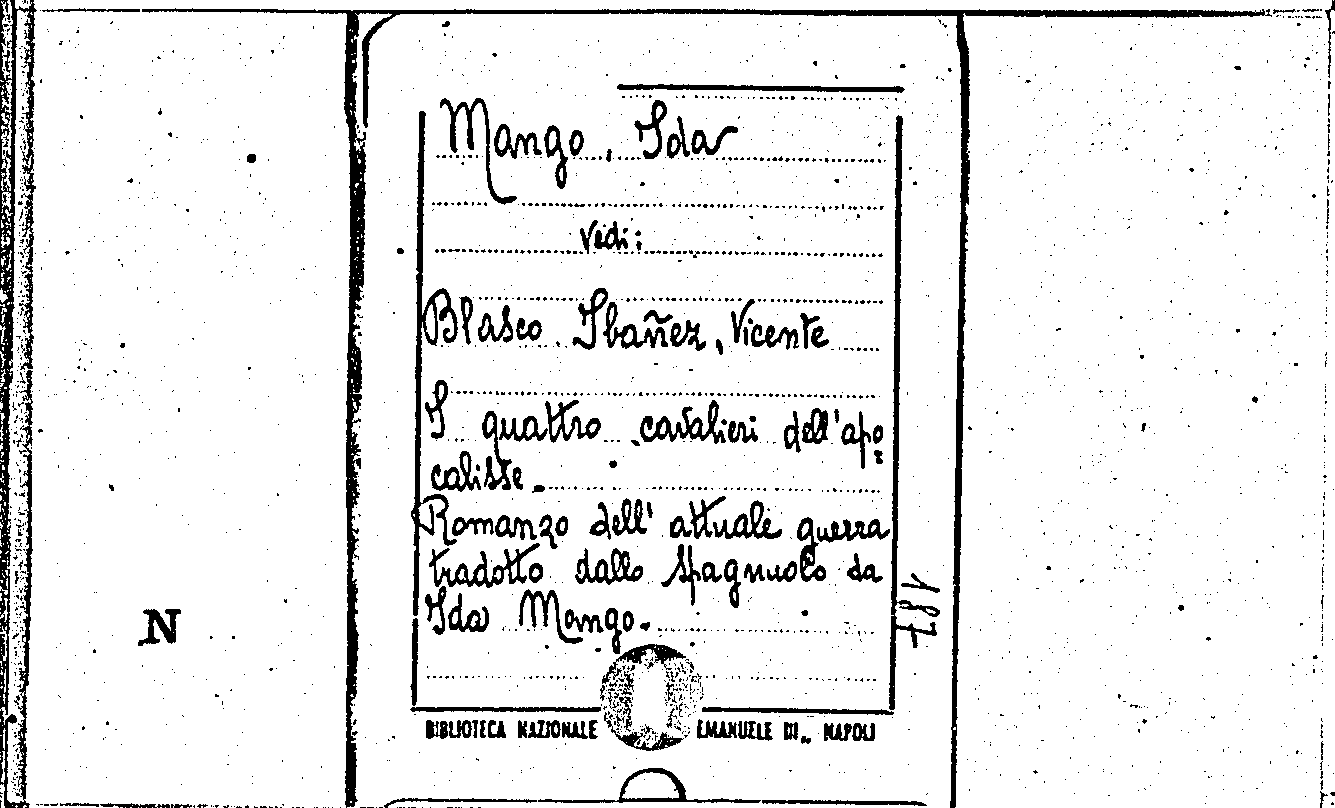 Mango, Ida
Vedi:
Blasco Ibañez, Vicente
I quattro cavalieri dell'apo=
calisse.
Romanzo dell'attuale guerra
tradotto dallo spagnuolo da
Ida Mango.
187
N
BIBLIOTECA NAZIONALE EMANUELE III„ NAPOLI